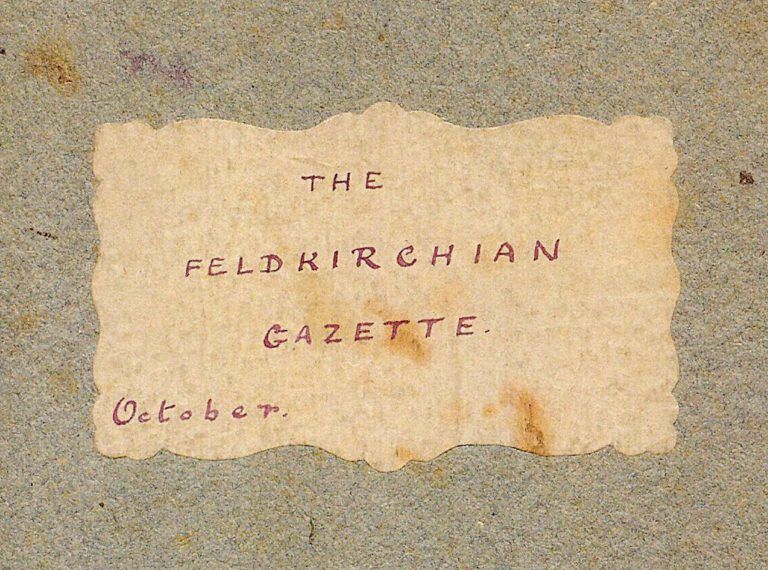 THE
FELDKIRCHIAN
GAZETTE.
October.